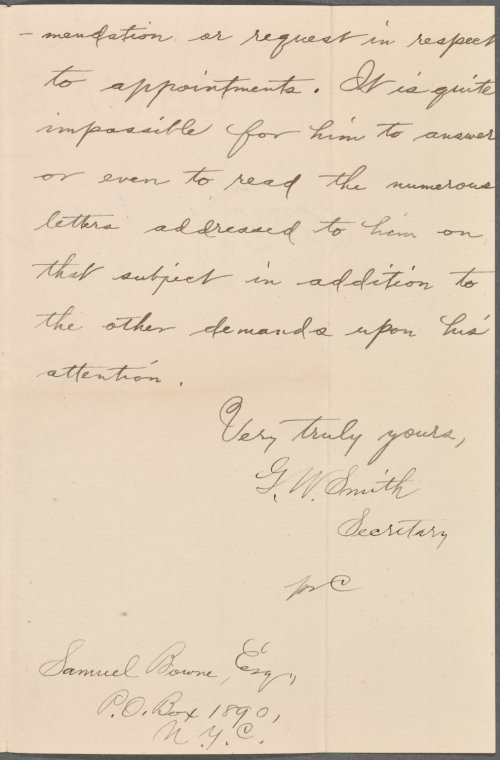 - mendation or request in respect
to appointments. It is quite
impossible for him to answer
or even to read the numerous
letters addressed to him on
that subject in addition to
the other demands upon his
attention.
Very truly yours,
G. W. Smith
Secretary
per C
Samuel Bowne, Esq.,
P.O. Box 1890,
N.Y.C.